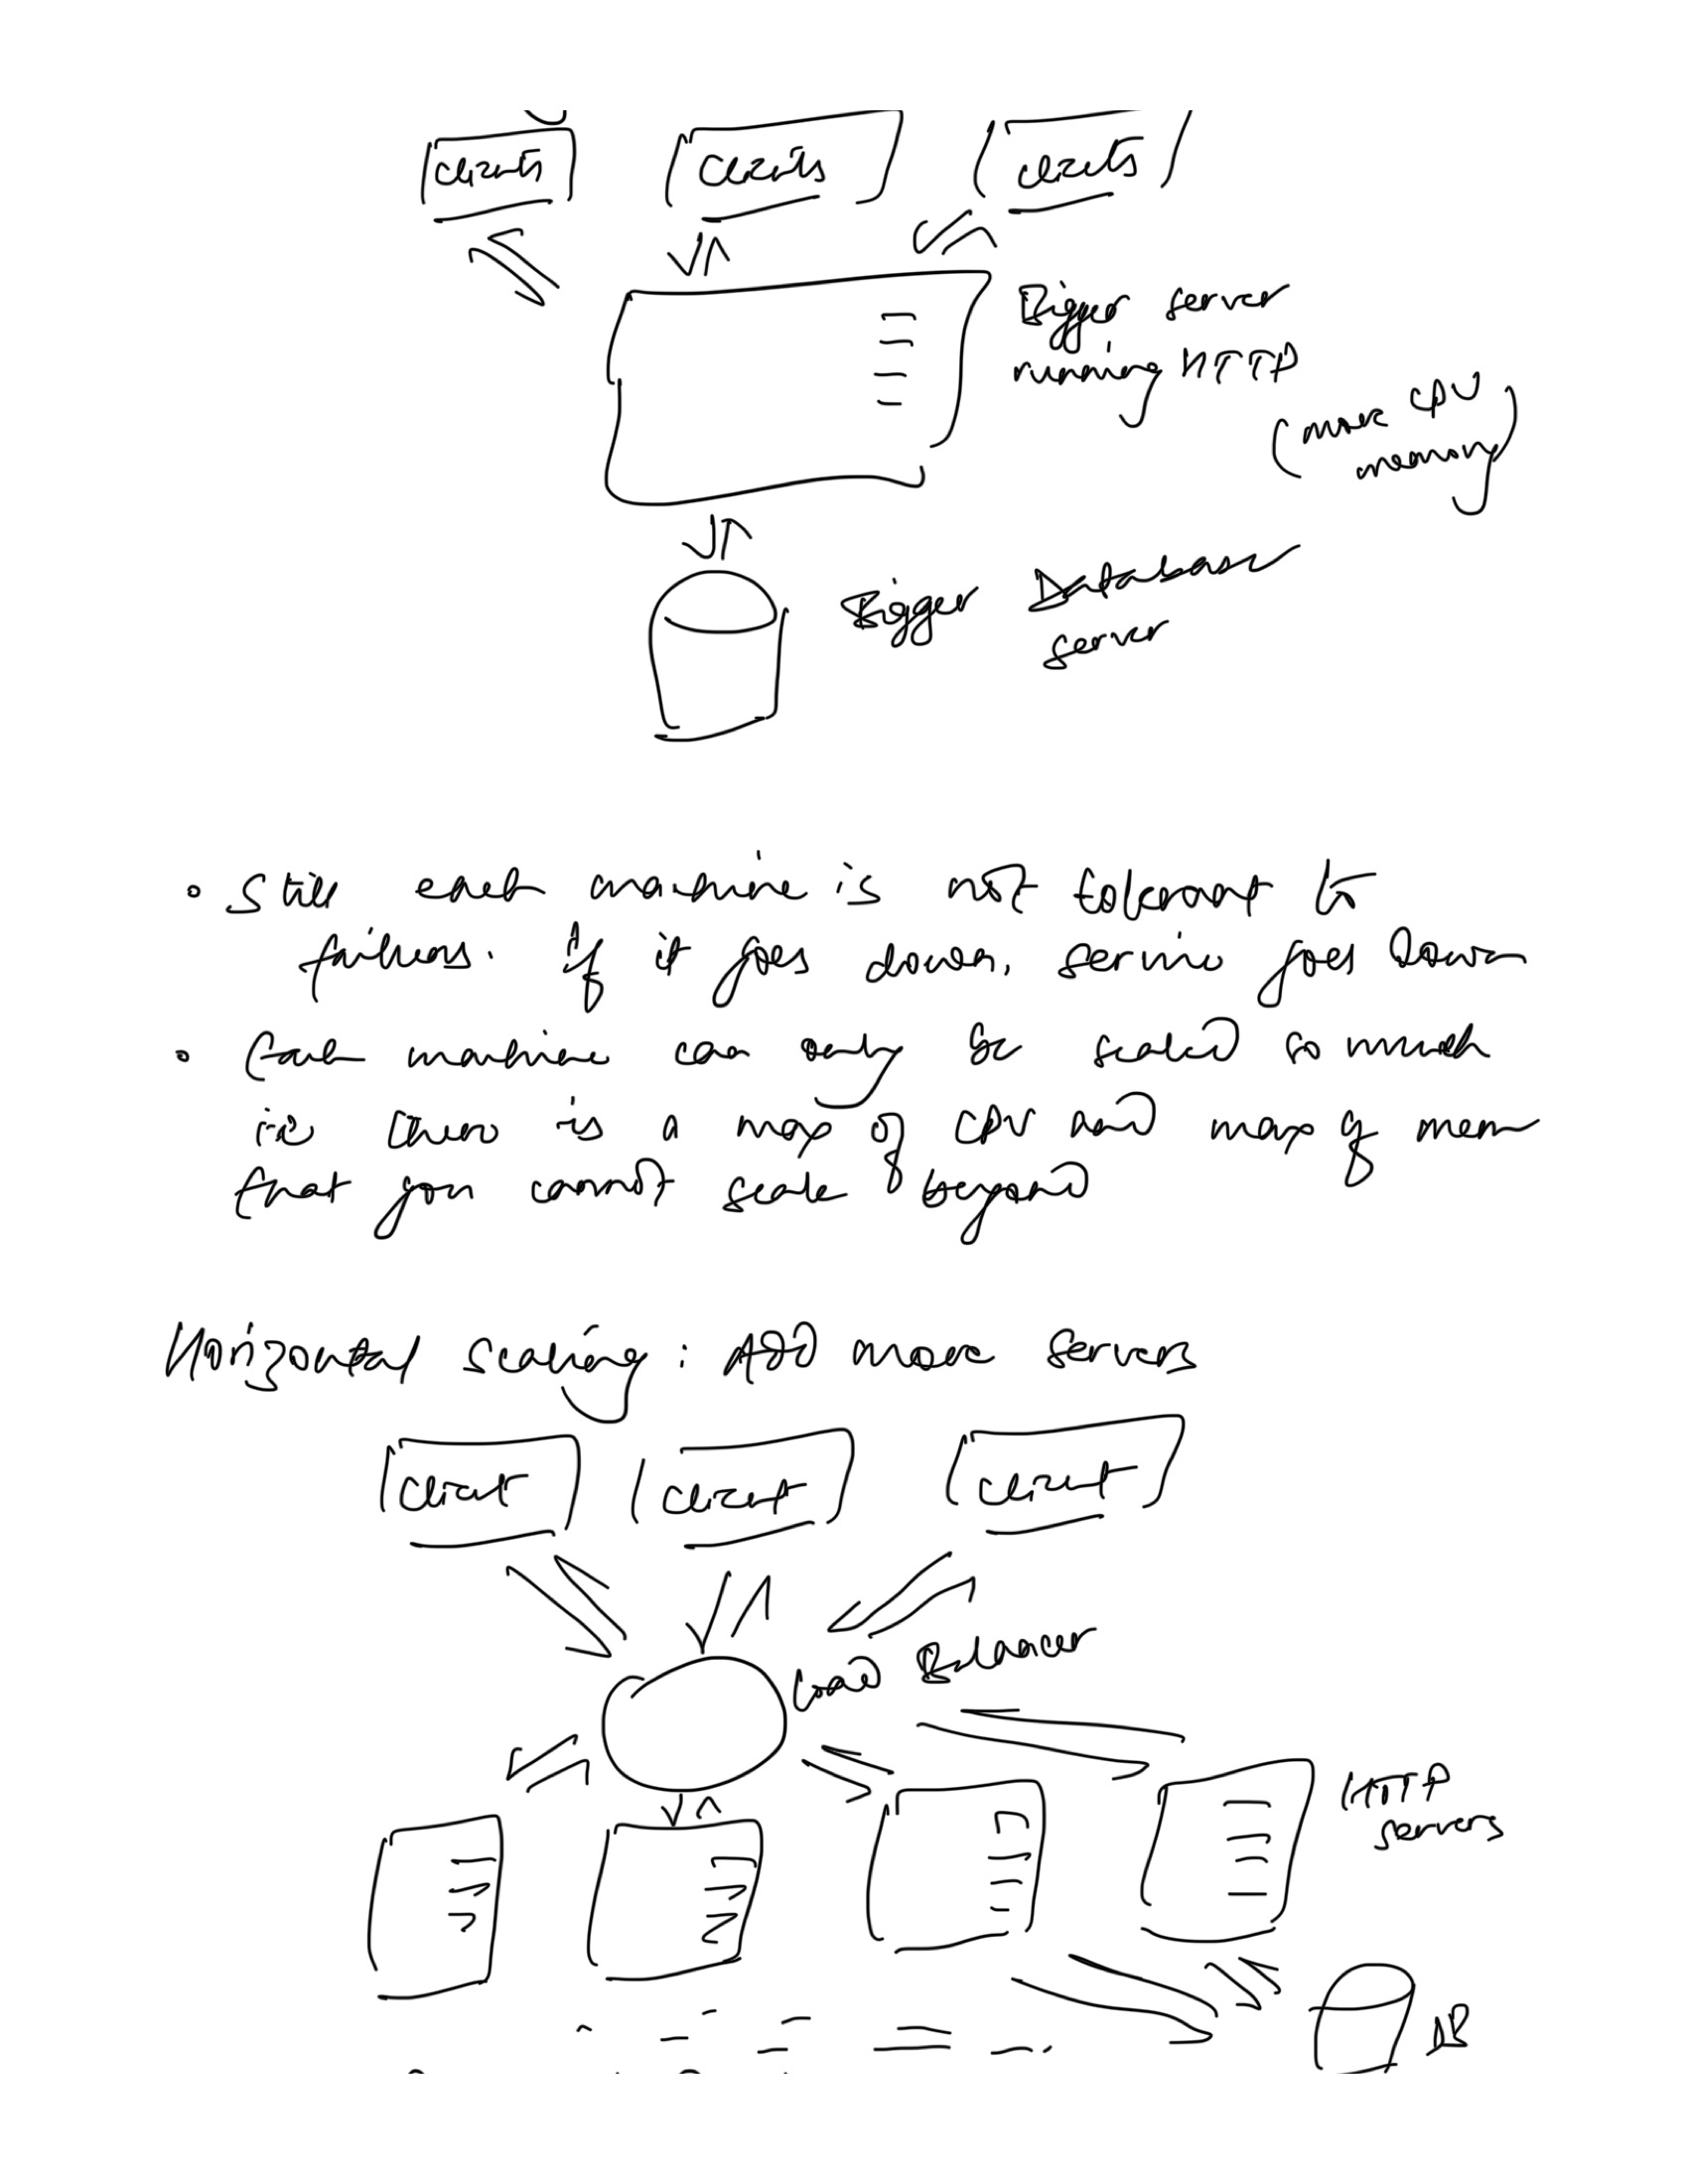 clients clients clients
Bigger server
running HTTP
(more CPU
memory)
Bigger Database
server
• Still each machine is not tolerant to
failures. If it goes down, service goes down
• Each machine can only be scaled so much
i.e there is a max of CPU and max of mem
that you cannot scale beyond
Horizontal scaling : Add more servers
client client client
Load Balancer
HTTP
servers
DB